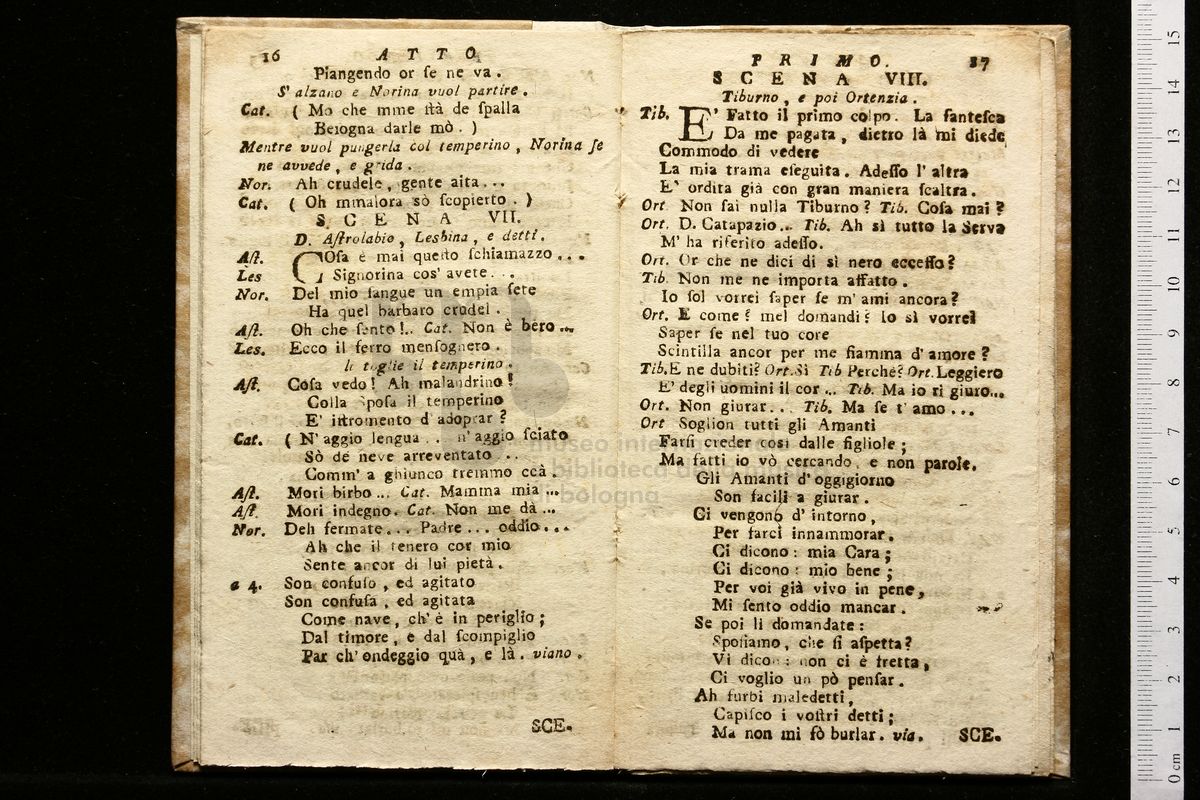 16 ATTO
Piangendo or ſe ne va.
S' alzano e Norina vuol partire.
Cat. ( Mo che mme ſtà de ſpalla
Beſogna darle mò. )
Mentre vuol pungerla col temperino, Norina ſe
ne avvede, e grida.
Nor. Ah crudele, gente aita...
Cat. ( Oh mmalora sò ſcopierto. )
SCENA VII.
D. Aſtrolabio, Lesbina, e detti.
Aſt. COſa è mai queſto ſchiamazzo...
Les Signorina cos' avete...
Nor. Del mio ſangue un empia ſete
Ha quel barbaro crudel.
Aſt. Oh che ſento!.. Cat. Non è bero...
Les. Ecco il ferro menſognero.
li toglie il temperino.
Aſt. Coſa vedo! Ah malandrino!
Colla Spoſa il temperino
E' iſtromento d' adoprar?
Cat. ( N' aggio lengua.. n' aggio ſciato
Sò de neve arreventato..
Comm' a ghiunco tremmo ccà.
Aſt. Mori birbo... Cat. Mamma mia...
Aſt. Mori indegno. Cat. Non me dà...
Nor. Deh fermate... Padre... oddio...
Ah che il tenero cor mio
Sente ancor di lui pietà.
a 4. Son confuſo, ed agitato
Son confuſa, ed agitata
Come nave, ch' è in periglio;
Dal timore, e dal ſcompiglio
Par ch' ondeggio quà, e là. viano.
SCE.
PRIMO. 17
SCENA VIII.
Tiburno, e poi Ortenzia.
Tib. E' Fatto il primo colpo. La fanteſca
Da me pagata, dietro là mi diede
Commodo di vedere
La mia trama eſeguita. Adeſſo l' altra
E' ordita già con gran maniera ſcaltra.
Ort Non ſai nulla Tiburno? Tib. Coſa mai?
Ort. D. Catapazio... Tib. Ah sì tutto la Serva
M' ha riferito adeſſo.
Ort. Or che ne dici di sì nero ecceſſo?
Tib. Non me ne importa affatto.
Io ſol vorrei ſaper ſe m' ami ancora?
Ort. E come? mel domandi? Io sì vorrei
Saper ſe nel tuo core
Scintilla ancor per me fiamma d' amore?
Tib. E ne dubiti? Ort. Sì Tib Perchè? Ort. Leggiero
E' degli uomini il cor... Tib. Ma io ti giuro...
Ort. Non giurar... Tib. Ma ſe t' amo...
Ort Soglion tutti gli Amanti
Farſi creder così dalle figliole;
Ma fatti io vò cercando, e non parole.
Gli Amanti d' oggigiorno
Son facili a giurar.
Ci vengono d' intorno,
Per farci innammorar.
Ci dicono: mia Cara;
Ci dicono: mio bene;
Per voi già vivo in pene,
Mi ſento oddio mancar.
Se poi li domandate:
Spoſiamo, che ſi aſpetta?
Vi dicon: non ci è fretta,
Ci voglio un pò penſar.
Ah furbi maledetti,
Capiſco i voſtri detti;
Ma non mi fò burlar. via. SCE.
museo internazionale
e biblioteca della musica
di bologna
0 cm 1 2 3 4 5 6 7 8 9 10 11 12 13 14 15